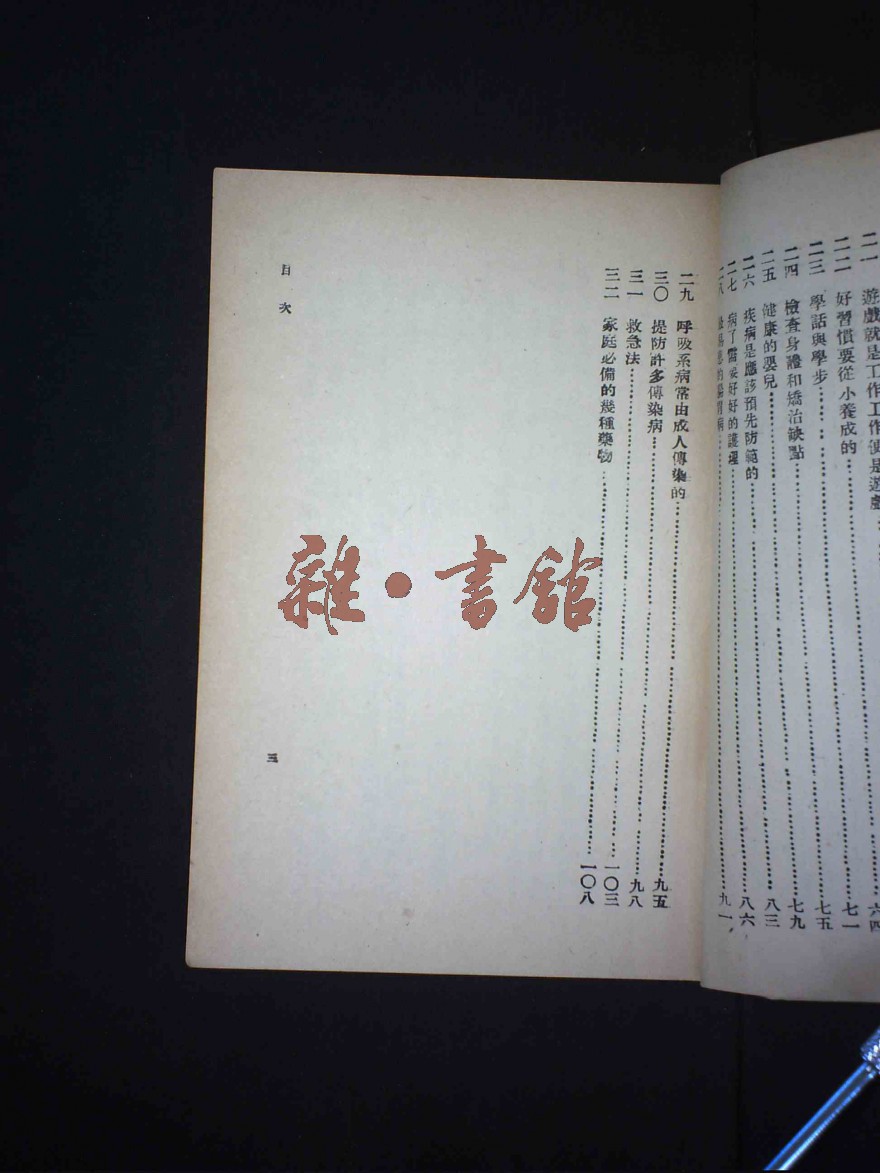 二一 遊戲就是工作工作便是遊戲……六四
二二 好習慣要從小養成的……七一
二三 學話與學步……七五
二四 檢查身體和矯治缺點……七九
二五 健康的嬰兒……八三
二六 疾病是應該預先防範的……八六
二七 病了需要好好的護理……九一
二八 的腸胃病……
二九 呼吸系病常由成人傳染的……九五
三〇 提防許多傳染病……九八
三一 救急法……一〇三
三二 家庭必備的幾種藥物……一〇八
目次
三
雜·書館